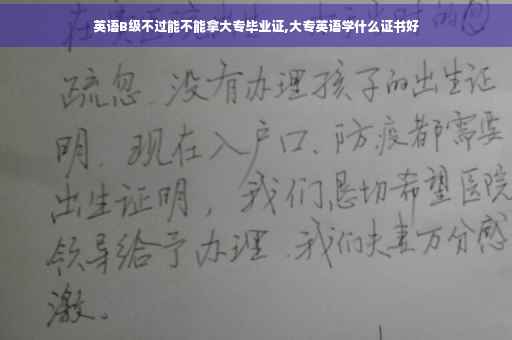 英语B级不过能不能拿大专毕业证,大专英语学什么证书好
疏忽、没有办理孩子的出生证
明、现在入户口、防疫都需要
出生证明，我们恳切希望医院
领导给予办理、我们夫妻万分感
激。